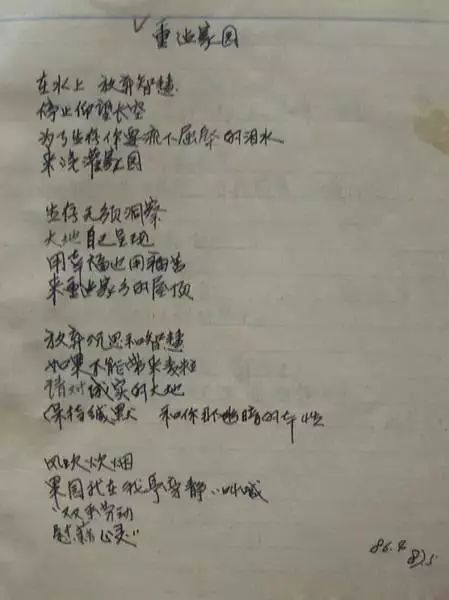 重建家园
在水上 放弃智慧
停止仰望长空
为了生存你要流下屈辱的泪水
来浇灌家园
生存无须洞察
大地自己呈现
用幸福也用痛苦
来重建家乡的屋顶
放弃沉思和智慧
如果不能带来麦粒
请对诚实的大地
保持缄默 和你那幽暗的本性
风吹炊烟
果园就在我身旁静静叫喊
“双手劳动
慰藉心灵”
86.4
87.5